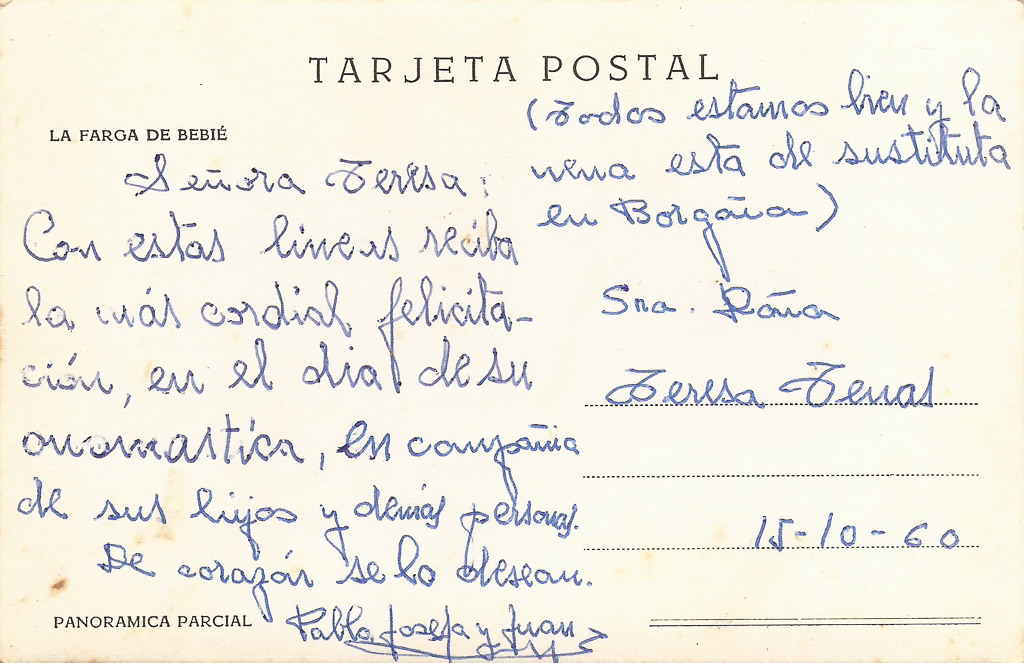 TARJETA POSTAL
LA FARGA DE BEBIÉ
Señora Teresa:
Con estas lineas reciba
la más cordial felicita-
ción, en el dia de su
onomastica, en compañia
de sus hijos y demás personas.
De corazón se lo desean.
Pablo, Josefa y Juan
PANORAMICA PARCIAL
(Todos estamos bien y la
nena esta de sustituta
en Borgoña)
Sra. Doña
Teresa Tenas
15-10-60